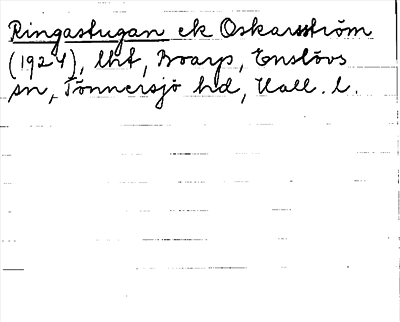 Ringastugan ek Oskarsström
(1924), lht, Boarp, Enslövs
sn, Tönnersjö hd, Hall. l.